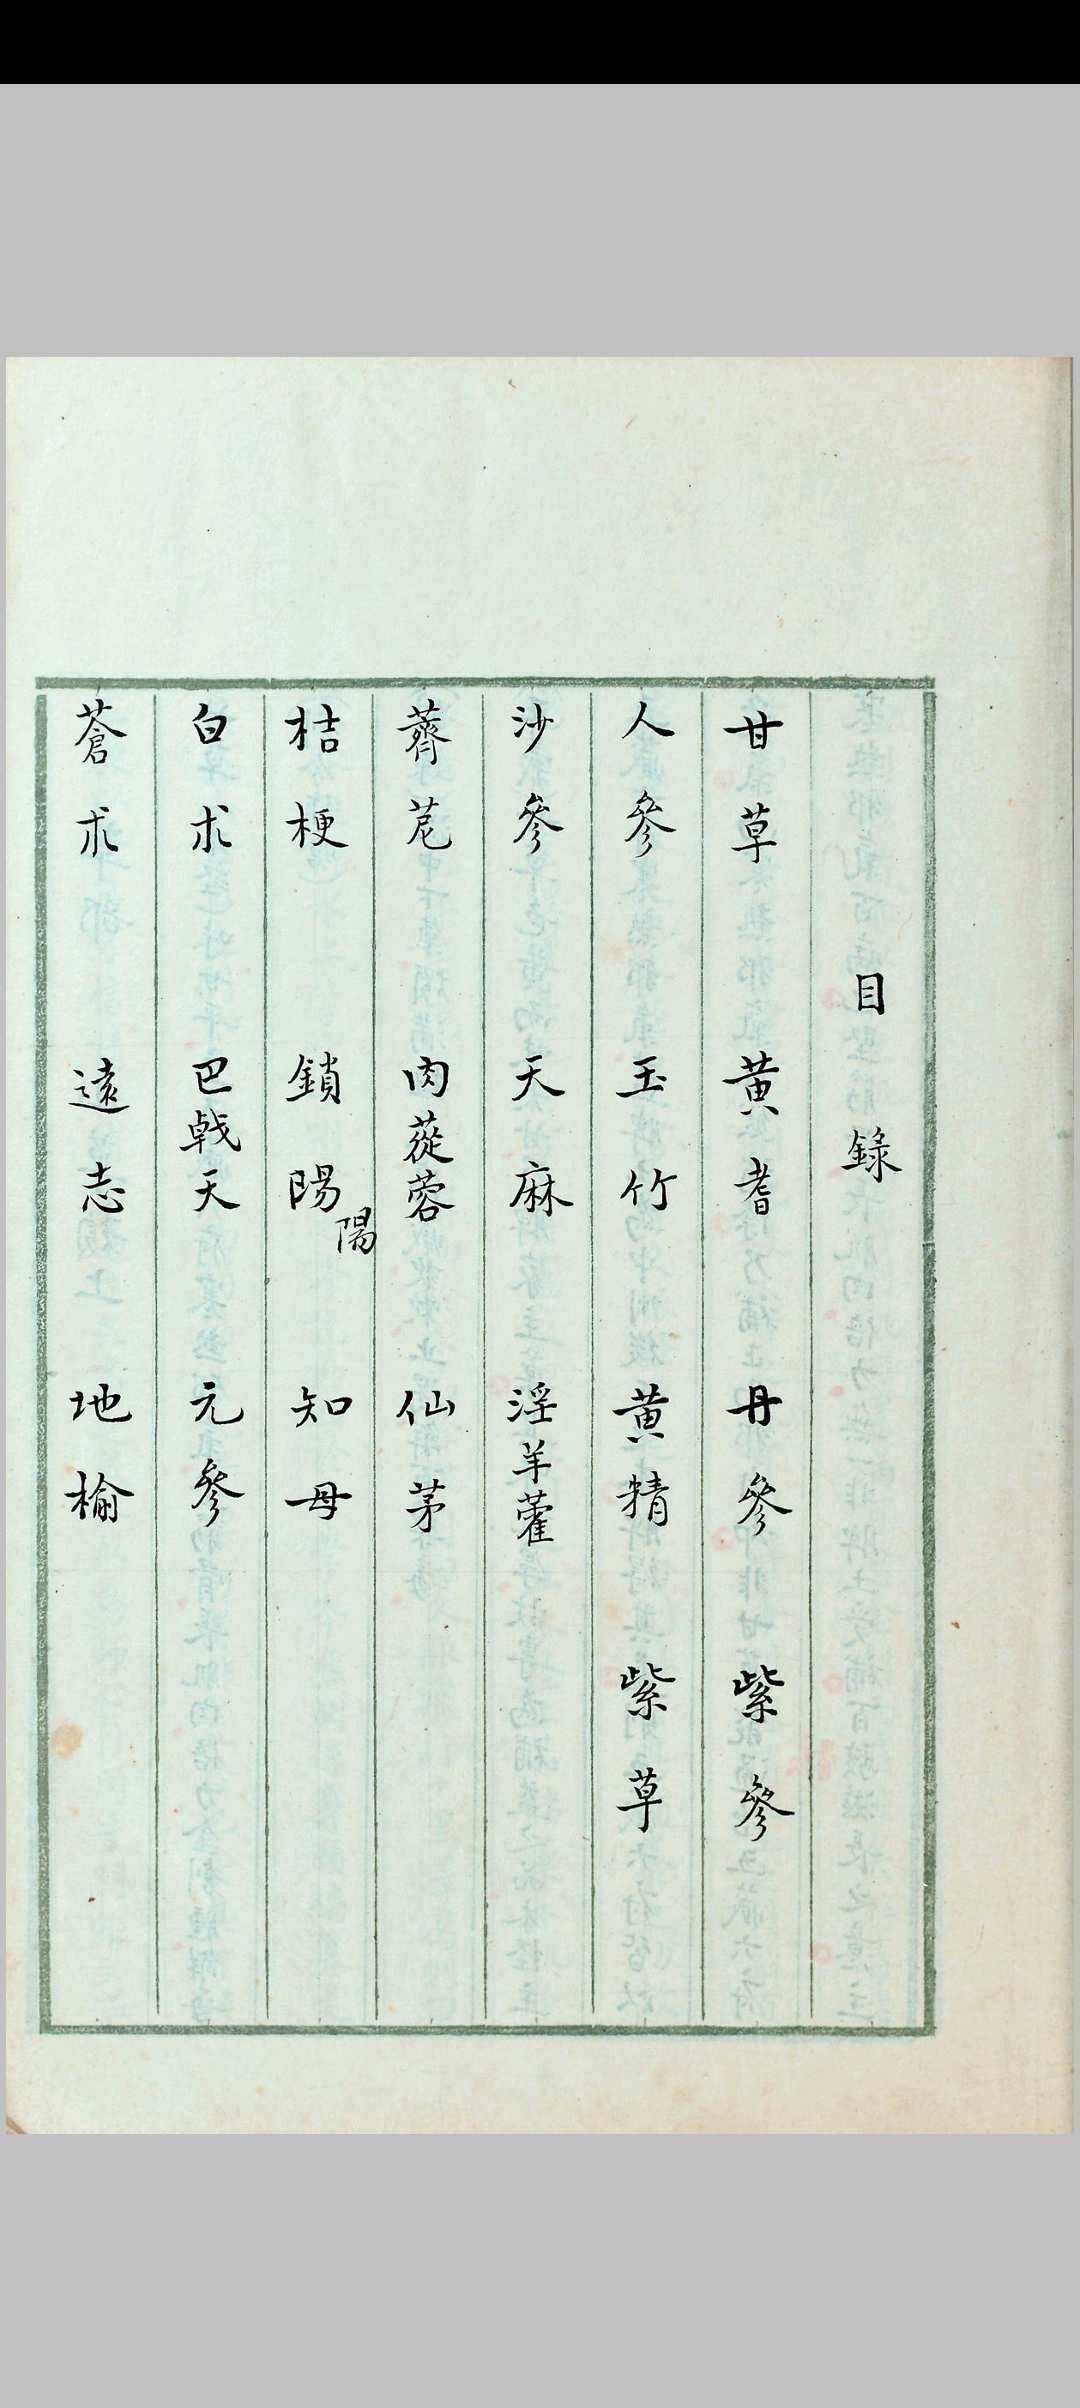 目錄
甘草 黃耆 丹參 紫參
人參 玉竹 黃精 紫草
沙參 天麻 淫羊藿
薺苨 肉蓯蓉 仙茅
桔梗 鎖陽 陽 知母
白朮 巴戟天 元參
蒼朮 遠志 地榆